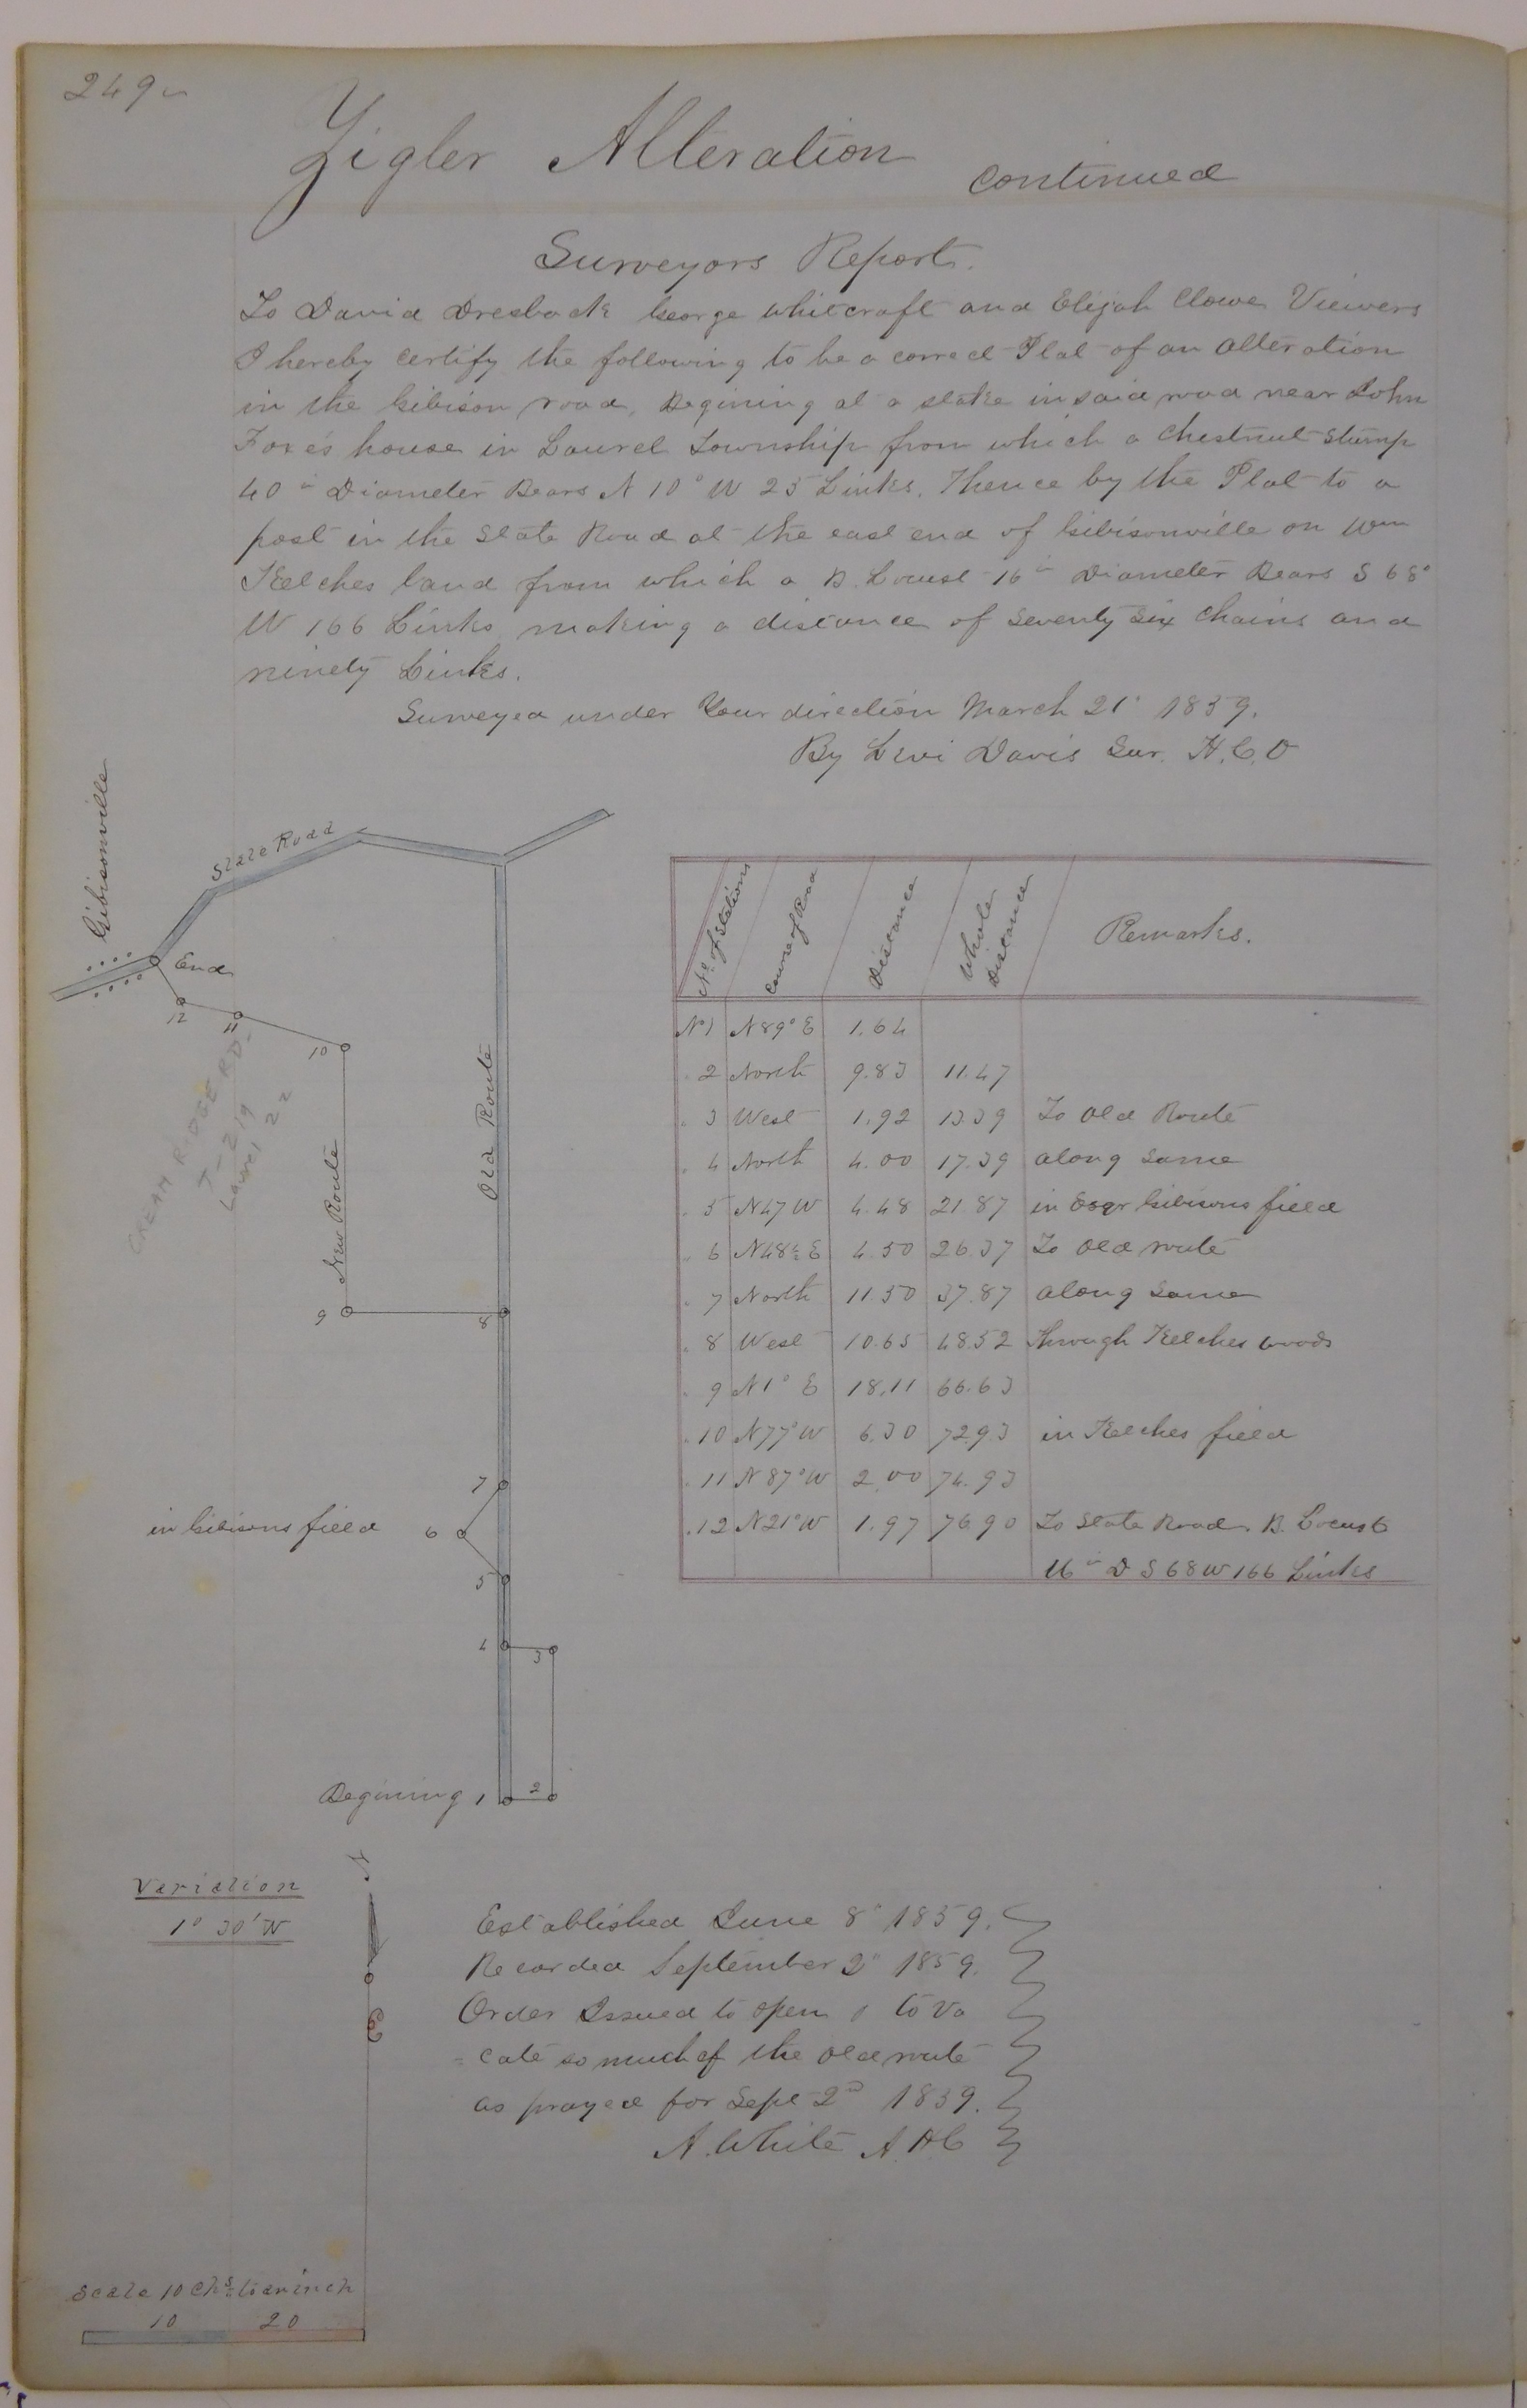 249
Zigler Alteration continued
Surveyors Report.
To David Dresback George Whitcraft and Elijah Clowe Viewers
I hereby certify the following to be a correct Plat of an alteration
in the Gibison road, Begining at a stake in said road near John
Foxes house in Laurel Township from which a Chestnut Stump
40 in Diameter Bears N 10° W 25 Links. Thence by the Plat to a
post in the State Road at the east end of Gibisonville on Wm
Kelches land from which a B. Locust 16 in Diameter Bears S 68°
W 166 Links making a distance of Seventy Six Chains and
ninety Links.
Surveyed under Your direction March 21st 1859.
By Levi Davis Sur. H.C.O
Gibisonville
State Road
End
12
11
10
CREAM RIDGE RD.
T-219
Laurel 22
New Route
Old Route
9
8
7
in Gibisons field 6
5
4
3
Begining 1
2
No of Stations Course of Road Distance Whole Distance Remarks.
No 1 N 89° E 1.64
" 2 North 9.83 11.47
" 3 West 1.92 13.39 To Old Route
" 4 North 4.00 17.39 along Same
" 5 N 47 W 4.48 21.87 in Gibisons field
" 6 N 48½ E 4.50 26.37 To Old route
" 7 North 11.50 37.87 along Same
" 8 West 10.65 48.52 Through Kelches woods
" 9 N 1° E 18.11 66.63
" 10 N 77° W 6.30 72.93 in Kelches field
" 11 N 87° W 2.00 74.93
" 12 N 21° W 1.97 76.90 To State Road. B. Locust
16 in D S 68 W 166 Links
Variation
1° 30' W
N
Established June 8th 1859.
Recorded September 2d 1859.
Order Issued to open & to Va
=cate so much of the Old route
as prayed for Sept 2nd 1859.
A. White A.H.C
Scale 10 Chs. to an inch
10 20